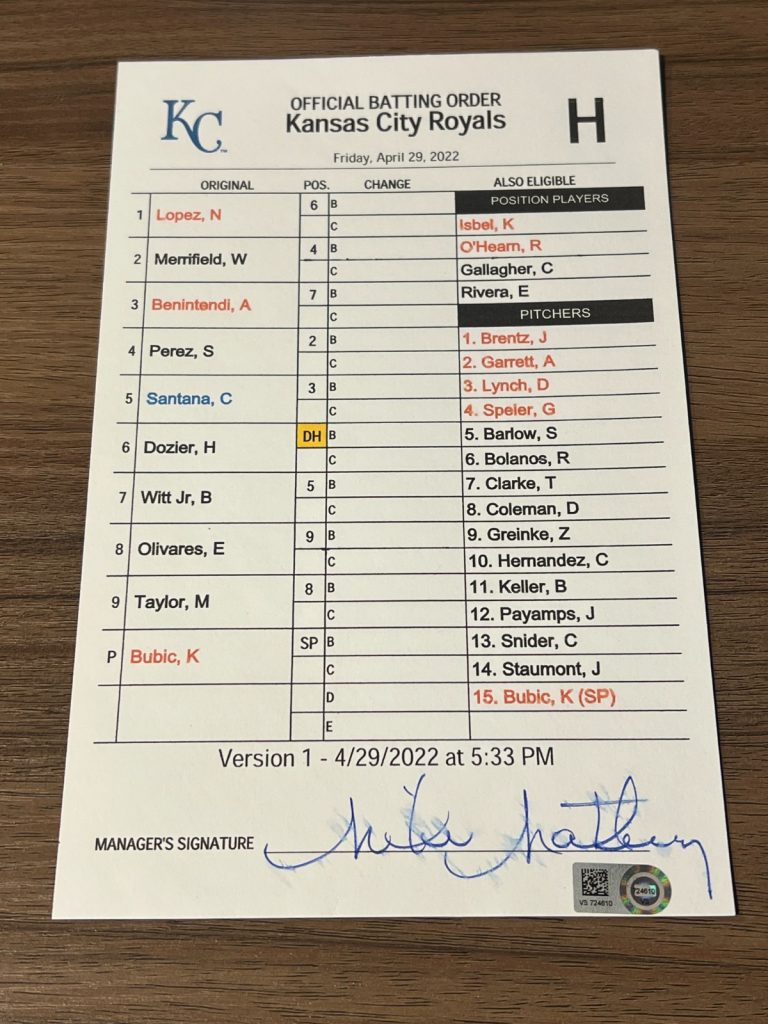 KC
TM
OFFICIAL BATTING ORDER
Kansas City Royals
H
Friday, April 29, 2022
ORIGINAL POS. CHANGE ALSO ELIGIBLE
POSITION PLAYERS
1 Lopez, N 6 B
C Isbel, K
2 Merrifield, W 4 B O'Hearn, R
C Gallagher, C
3 Benintendi, A 7 B Rivera, E
C PITCHERS
4 Perez, S 2 B 1. Brentz, J
C 2. Garrett, A
5 Santana, C 3 B 3. Lynch, D
C 4. Speier, G
6 Dozier, H DH B 5. Barlow, S
C 6. Bolanos, R
7 Witt Jr, B 5 B 7. Clarke, T
C 8. Coleman, D
8 Olivares, E 9 B 9. Greinke, Z
C 10. Hernandez, C
9 Taylor, M 8 B 11. Keller, B
C 12. Payamps, J
P Bubic, K SP B 13. Snider, C
C 14. Staumont, J
D 15. Bubic, K (SP)
E
Version 1 - 4/29/2022 at 5:33 PM
MANAGER'S SIGNATURE Mike Matheny
VS 724610
724610
VS